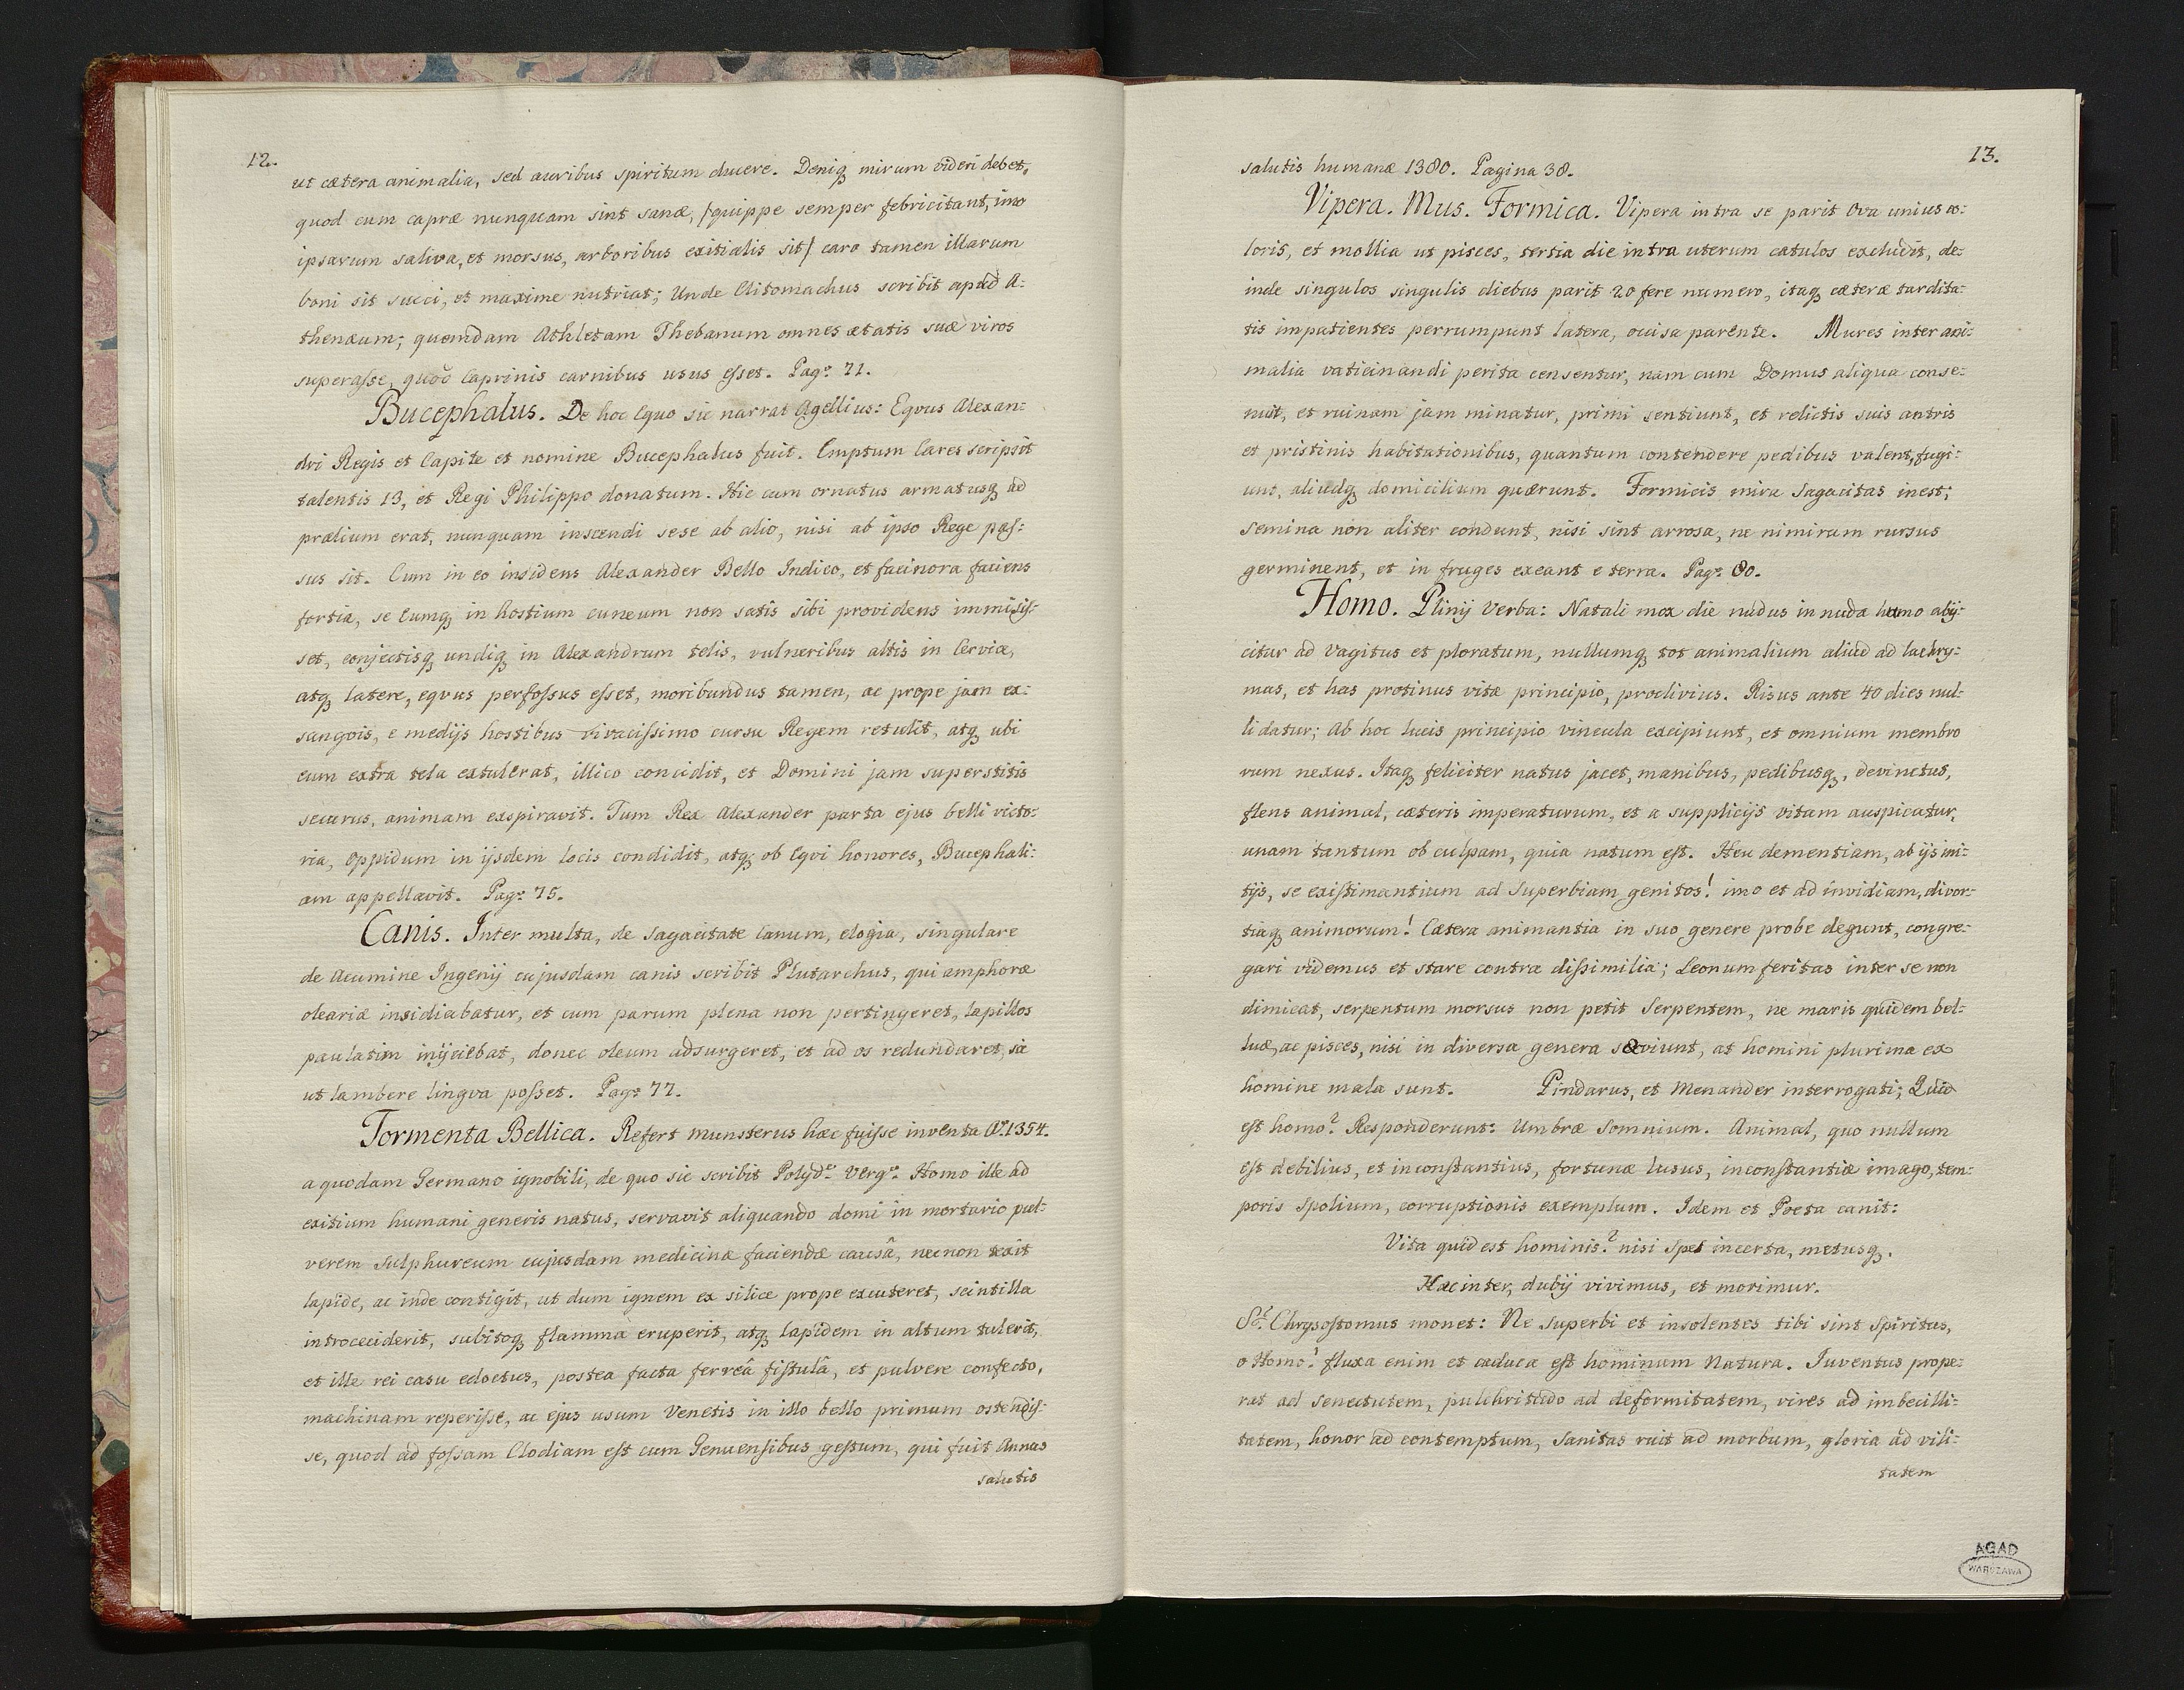 12.
ut cætera animalia, sed auribus spiritum ducere. Deniq3 mirum videri debet,
quod cum capræ nunquam sint sanæ, /quippe semper febricitant, imo
ipsarum saliva, et morsus, arboribus exitialis sit/ caro tamen illarum
boni sit succi, et maxime nutriat; Unde Clitomachus scribit apud A-
thenæum; quemdam Athletam Thebanum omnes ætatis suæ viros
superaſse, quod Caprinis carnibus usus eſset. Pag: 71.
Bucephalus. De hoc Equo sic narrat Agellius: Eqvus Alexan-
dri Regis et Capite et nomine Bucephalus fuit. Emptum Cares scripsit
talentis 13, et Regi Philippo donatum. Hic cum ornatus armatusq3 ad
prælium erat, nunquam inscendi sese ab alio, nisi ab ipso Rege paſ-
sus sit. Cum in eo insidens Alexander Bello Indico, et facinora faciens
fortia, se Cumq3 in hostium cuneum non satis sibi providens immisiſ-
set, conjectisq3 undiq3 in Alexandrum telis, vulneribus altis in Cervice,
atq3 latere, eqvus perfoſsus eſset, moribundus tamen, ac prope jam ex-
sangvis, e medijs hostibus vivaciſsimo cursu Regem retulit, atq3 ubi
eum extra tela extulerat, illico concidit, et Domini jam superstitis
securus, animam exspiravit. Tum Rex Alexander parta ejus belli victo-
ria, Oppidum in ijsdem locis condidit, atq3 ob Eqvi honores, Bucephali-
am appellavit. Pag: 75.
Canis. Inter multa, de sagacitate Canum, elogia, singulare
de Acumine Ingenij cujusdam canis scribit Plutarchus, qui amphoræ
oleariæ insidiabatur, et cum parum plena non pertingeret, lapillos
paulatim injiciebat, donec oleum adsurgeret, et ad os redundaret, sic
ut lambere lingva poſset. Pag: 77.
Tormenta Bellica. Refert Munsterus hæc fuiſse inventa Aº. 1354.
a quodam Germano ignobili, de quo sic scribit Polyd: Verg: Homo ille ad
exitium humani generis natus, servavit aliquando domi in mortario pul-
verem sulphureum cujusdam medicinæ faciendæ causâ, necnon texit
lapide, ac inde contigit, ut dum ignem ex silice prope excuteret, scintilla
introceciderit, subitoq3 flamma eruperit, atq3 lapidem in altum tulerit,
et ille rei casu edoctus, postea facta ferreâ fiſtulâ, et pulvere confecto,
machinam reperiſse, ac ejus usum Venetis in illo bello primum ostendiſ-
se, quod ad foſsam Clodiam eſt cum Genuenſibus geſtum, qui fuit Annus
salutis
13.
salutis humanæ 1380. Pagina 38.
Vipera. Mus. Formica. Vipera intra se parit Ova unius co-
loris, et mollia ut pisces, tertia die intra uterum catulos excludit, de-
inde singulos singulis diebus parit 20 fere numero, itaq3 cæteræ tardita-
tis impatientes perrumpunt latera, ocisa parente. Mures inter ani-
malia vaticinandi perita censentur, nam cum Domus aliqua conse-
nuit, et ruinam jam minatur, primi sentiunt, et relictis suis antris
et pristinis habitationibus, quantum contendere pedibus valent, fugi-
unt, aliudq3 domicilium quærunt. Formicis mira Sagacitas inest;
Semina non aliter condunt, nisi sint arrosa, ne nimirum rursus
germinent, et in fruges exeant e terra. Pag: 80.
Homo. Plinij Verba: Natali mox die nudus in nuda humo abij-
citur ad Vagitus et ploratum, nullumq3 tot animalium aliud ad lachry-
mas, et has protinus vitæ principio, proclivius. Risus ante 40 dies nul-
li datur; Ab hoc lucis principio vincula excipiunt, et omnium membro
rum nexus. Itaq3 feliciter natus jacet, manibus, pedibusq3, devinctus,
flens animal, cæteris imperaturum, et a supplicijs vitam auspicatur,
unam tantum ob culpam, quia natum eſt. Heu dementiam, ab ijs ini-
tijs, se exiſtimantium ad Superbiam genitos! imo et ad invidiam, divor-
tiaq3 animorum! Cætera animantia in suo genere probe degunt, congre-
gari videmus et stare contra diſsimilia; Leonum feritas inter se non
dimicat, serpentum morsus non petit Serpentem, ne maris quidem bel-
luæ, ac pisces, nisi in diversa genera sæviunt, at homini plurima ex
homine mala sunt. Pindarus, et Menander interrogati; Quid
eſt homo? Responderunt: Umbræ Somnium. Animal, quo nullum
eſt debilius, et inconſtantius, fortunæ lusus, inconſtantiæ imago, tem-
poris Spolium, corruptionis exemplum. Idem et Poeta canit:
Vita quid est hominis? nisi Spes incerta, metusq3.
Hæc inter, dubij vivimus, et morimur.
St: Chrysoſtomus monet: Ne Superbi et insolentes tibi sint Spiritus,
o Homo! fluxa enim et caduca eſt hominum Natura. Juventus prope-
rat ad Senectutem, pulchritudo ad deformitatem, vires ad imbecilli-
tatem, honor ad contemptum, Sanitas ruit ad morbum, gloria ad vili-
tatem
AGAD
WARSZAWA